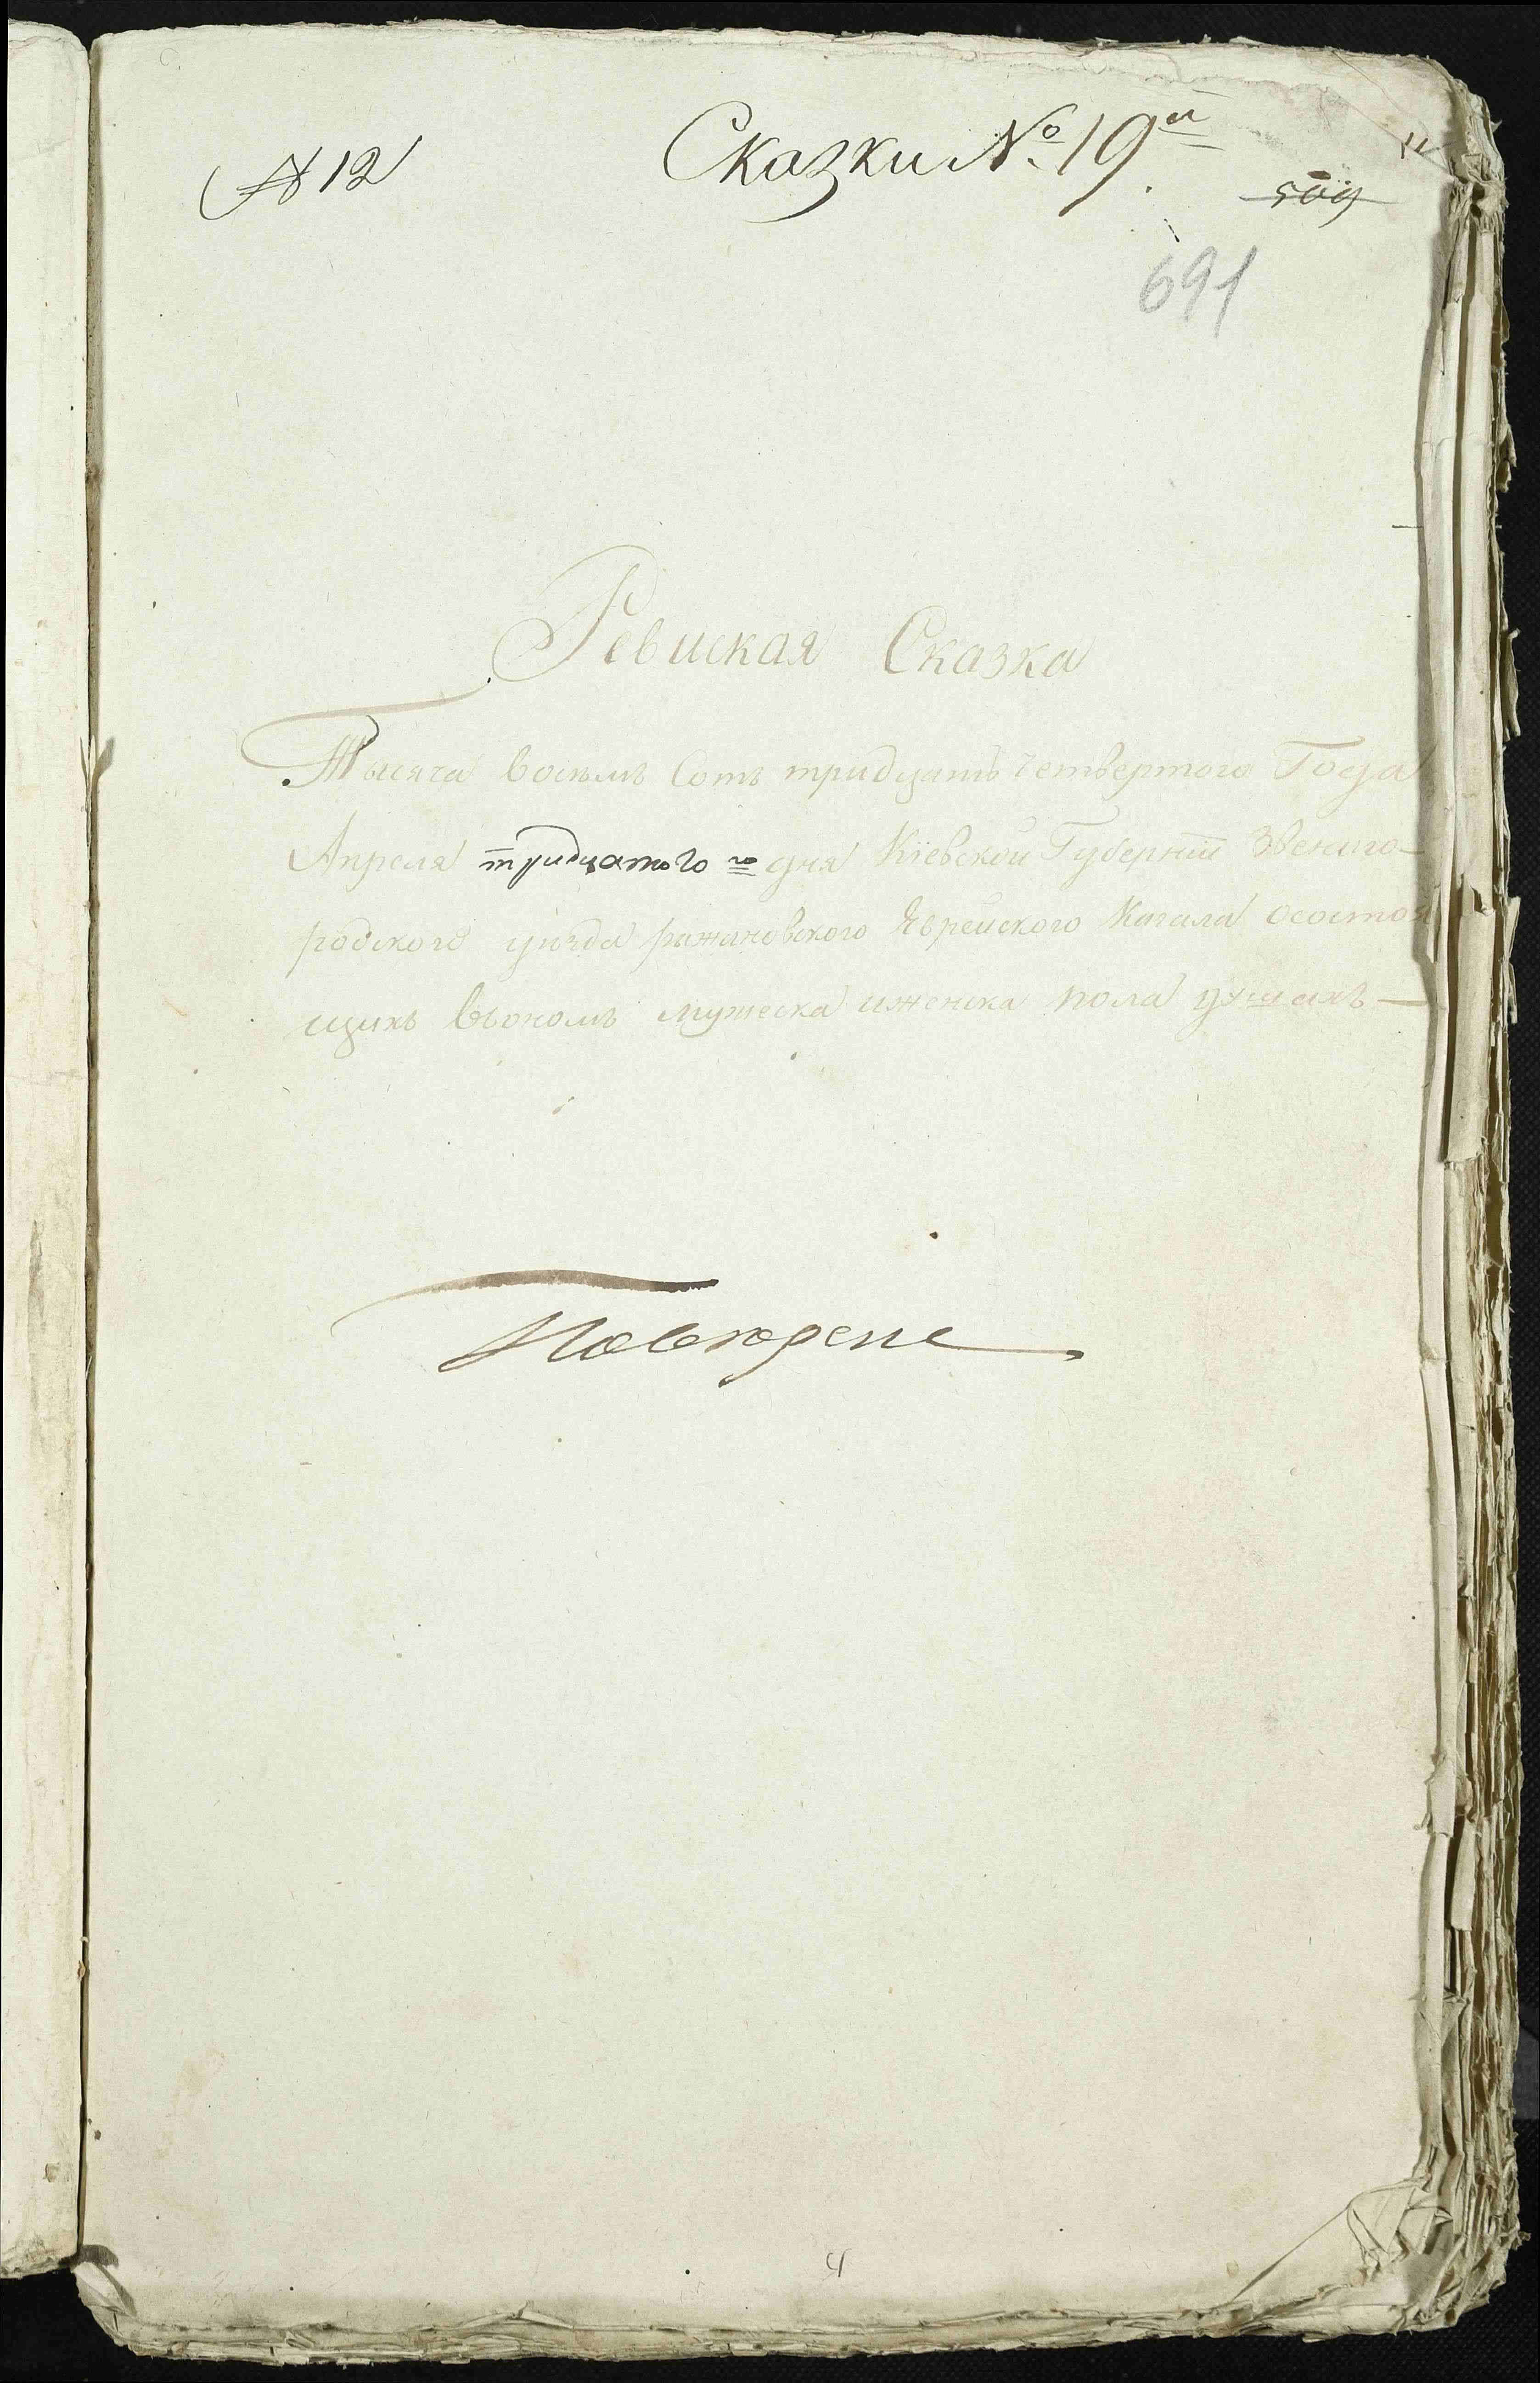 № 12
Сказки № 19й
11
509
691
Ревиская Сказка
Тысяча восемь Сотъ тридцать четвертого Года
Апреля тридцатого го дня Кіевской Губерніи Звениго-
родского уѣзда ражановского Еврейского Кагала осостоя
щихъ въономъ мужеска иженска пола душахъ —